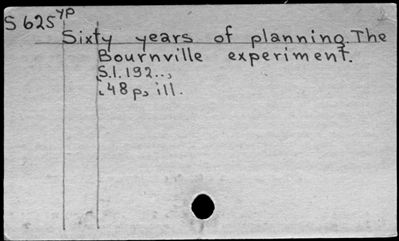 S 625 yp
Sixty years of planning. The
Bournville experiment.
S.l. 192..,
48 p., ill.